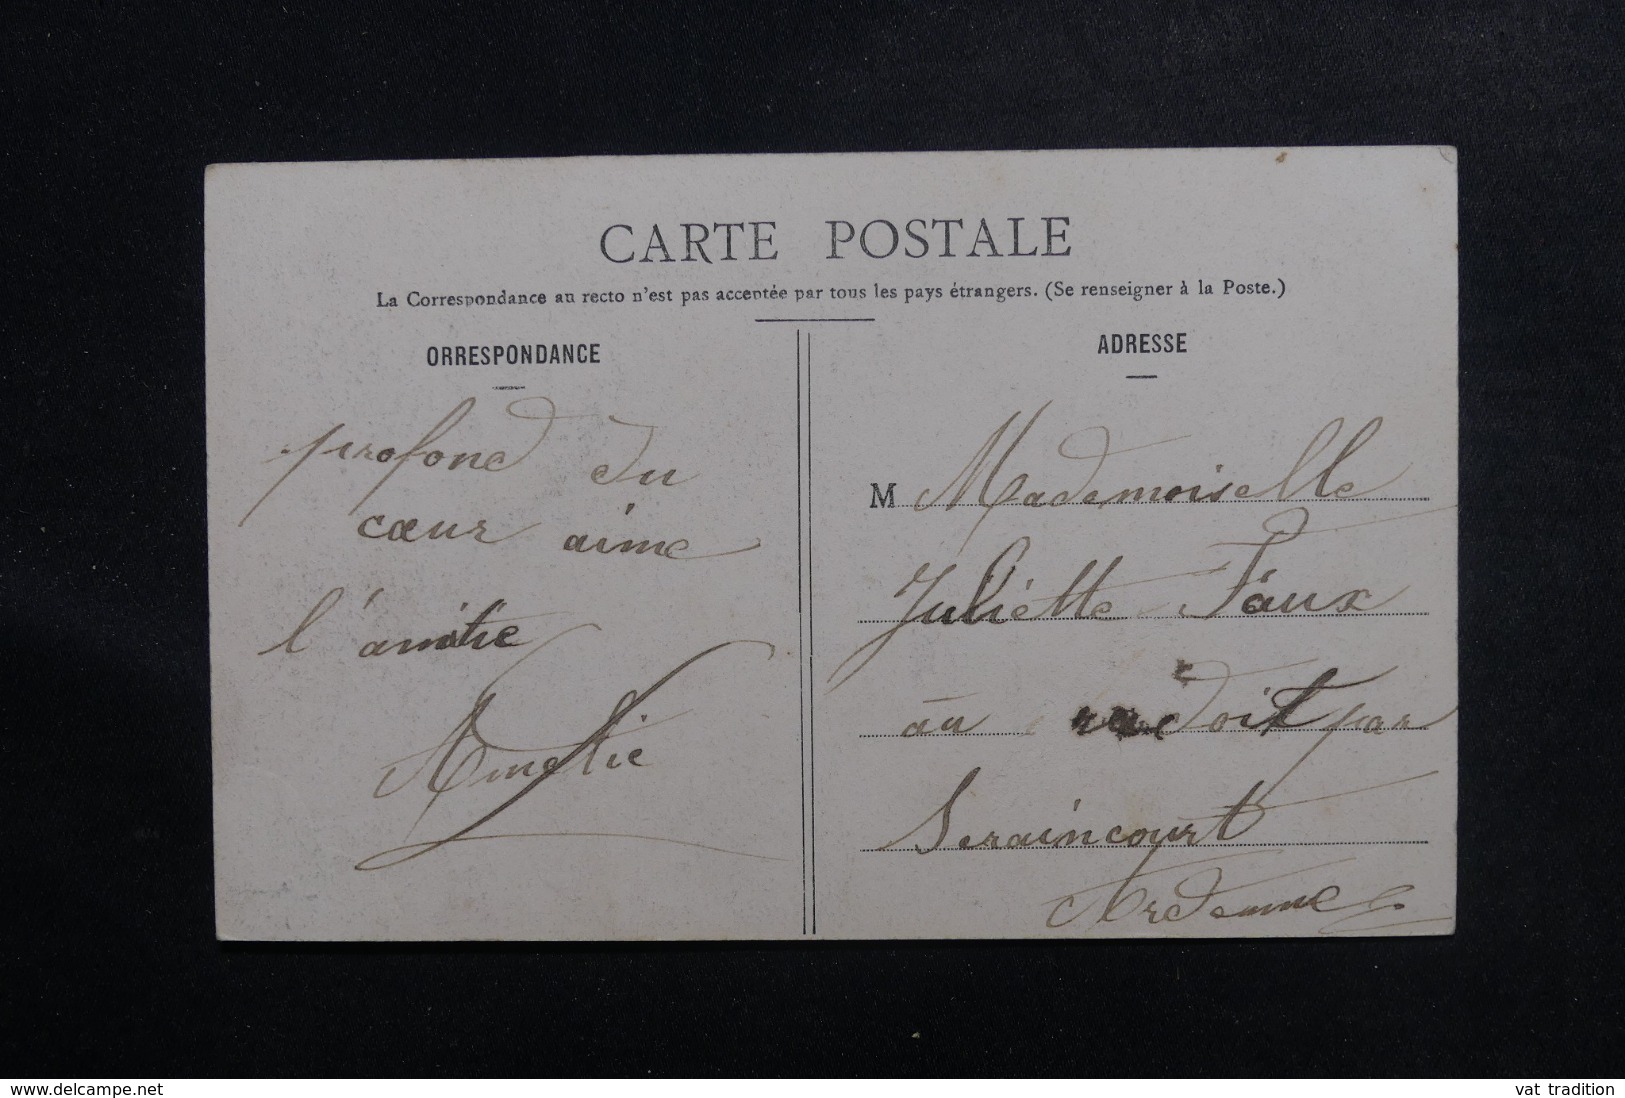 CARTE POSTALE
La Correspondance au recto n'est pas acceptée par tous les pays étrangers. (Se renseigner à la Poste.)
ORRESPONDANCE
profond du
cœur aime
l'amitie
Amelie
ADRESSE
M Mademoiselle
Juliette Faux
au doit par
Seraincourt
Ardenne
www.delcampe.net
vat_tradition